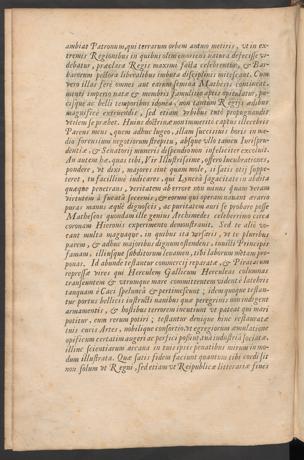 ambiat Patronum, qui terrarum orbem animo metiris, vt in ex
tremis Regionibus in quibus olim omnicus natura defecisse vi-
debatur, præclara Regis maximi facta celebrentur, & Bar-
barorum pectora liberalibus imbuta disciplinis mitescant. Cum
vero illas ferè omnes aut earum semina Mathesis contineat,
muniti imperio nata & membris familiæ aptis opituletur, pa-
cisque ac belli temporibus idonea, non tantum Regijs ædibus
magnificè extruendis, sed etiam vrbibus tutò propugnandis
vtilem se præbet. Huius doctrinæ
Parens meus, quem adhuc lugeo, illam succisiuis horis in me-
dio forensium negotiorum strepitu, absque vllo tamen Iurispru-
dentiæ, & Senatorij muneris dispendio non infeliciter excoluit.
An autem hæ, quas tibi, Vir Illustrissime, offero lucubrationes,
pondere, vt dixi, maiores sint quàm mole, si satis otij suppe-
teret, tu facillimè iudicares, qui Lynceâ sagacitate in abdita
quæque penetrans, veritatem ab errore non minus quàm veram
virtutem à fucatâ secernis, & eorum qui operam nauant æraria
puras manus æquè dignoscis, ac puritatem auri se probare posse
Matheseos quondam ille genius Archimedes celeberrimo circa
coronam Hieronis experimento demonstrauit. Sed te aliò vo-
cant multa magnaque, in quibus ita versaris, vt te pluribus
parem, & adhuc maioribus dignum ostendens, inuicti Principis
famam, illiusque subditorum leuamen, tibi laborum metam pro-
ponas. Id abundè testantur commercij reparatæ, & Piratarum
repressæ vires qui Herculem Gallicum Herculeas columnas
transeuntem & vtrumque mare committentem videre latebris
tanquam à Caci speluncâ & pertimescunt; idem quoque testan-
tur portus bellicis instructi nauibus quæ peregrinis non indigent
armamentis, & hostibus terrorem incutiunt vt pateat qui mari
potitur, eum rerum potiri; testantur denique hinc restauratæ
tuis curis Artes, nobilique consortio, vt egregiorum æmulatione
opificum certatim augeri ac perfici possint, auctæ industriâ sociatæ,
illinc scientiarum arcana in tuis ipsis penatibus mirum in mo-
dum illustrata. Quæ satis fidem faciunt quantum tibi cordi sit
non solum vt Regni, sed etiam vt Reipublicæ litterariæ fines